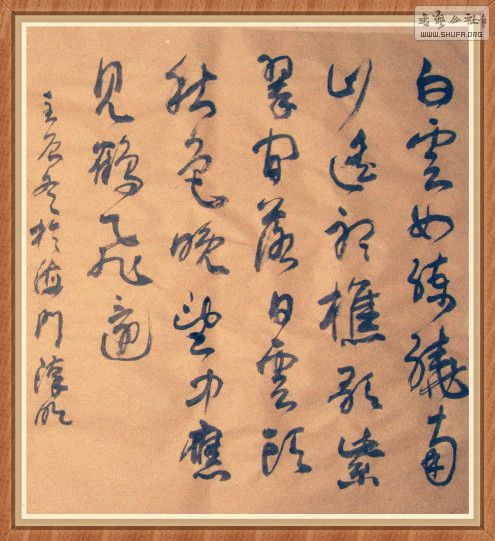 書藝公社
WWW.SHUFA.ORG
白雲如練繞南
山遙樵歌紫
翠間落日雲頭
秋色晚望中應
見鶴飛還
壬辰冬於海門